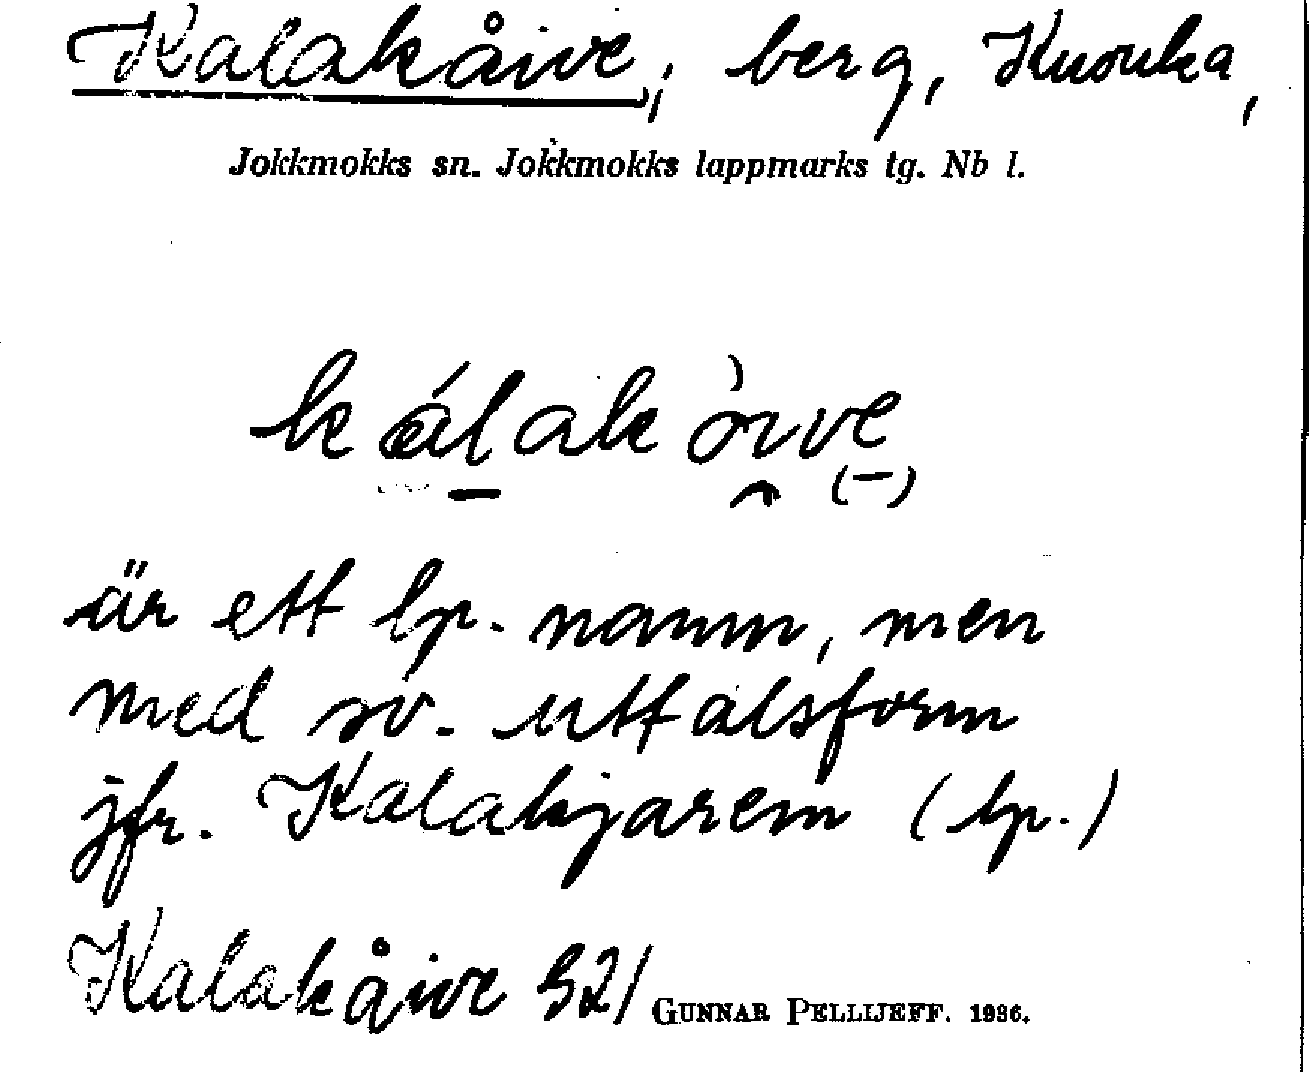 Kalakåive, berg, Kuouka,
Jokkmokks sn. Jokkmokks lappmarks tg. Nb l.
kálakòive
är ett lp. namn, men
med sv. uttalsform
jfr. Kalakjarem (lp.)
Kalakåive 32/ GUNNAR PELLIJEFF. 1936.